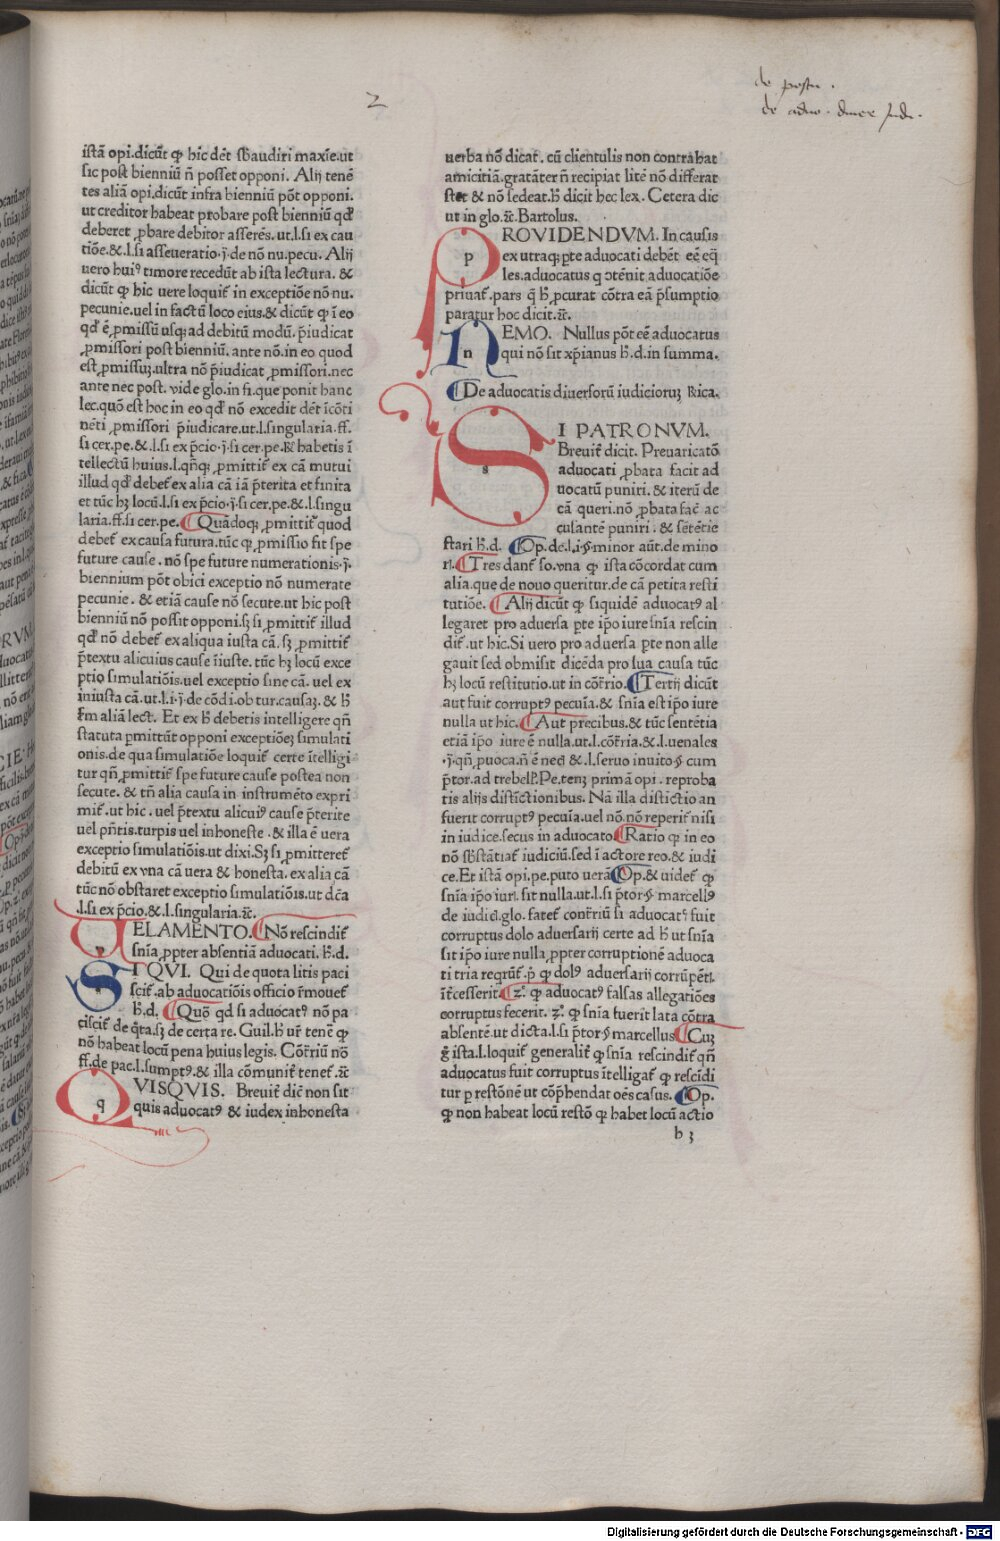 2
de postu.
de aduo. diuer. Judi.
istā opi.dicūt ꝙ hic dēt sb̄audiri maxīe.ut
sic post bienniū n̄ posset opponi. Alij tenē
tes aliā opi.dicūt infra bienniū pōt opponi.
ut creditor habeat probare post bienniū qd̄
deberet ꝓbare debitor asserēs.ut.l.si ex cau
tiōe.&.l.si asseueratio.j.de nō nu.pecu. Alij
uero huiꝰ timore recedūt ab ista lectura. &
dicūt ꝙ hic uere loquit̄ in exceptiōe nō nu.
pecunie.uel in factū loco eius.& dicūt ꝙ ī eo
qd̄ ē ꝓmissū usqꝫ ad debitū modū. p̄iudicat
ꝓmissori post bienniū. ante nō.in eo quod
est ꝓmissuꝫ.ultra nō p̄iudicat ꝓmissori.nec
ante nec post. vide glo.in fi.que ponit hanc
lec.quō est hoc in eo qd̄ nō excedit dēt īcōti
nēti ꝓmissori p̄iudicare.ut.l.singularia.ff.
si cer.pe.&.l.si ex p̄cio.j.si cer.pe. habetis ī
tellectū huius.l.qñqꝫ ꝓmittit̄ ex cā mutui
illud qd̄ debet̄ ex alia cā iā p̄terita et finita
et tūc hꝫ locū.l.si ex p̄cio.j.si cer.pe.&.l.singu
laria.ff.si cer.pe. Quādoqꝫ ꝓmittit̄ quod
debet̄ ex causa futura.tūc ꝙ ꝓmissio fit spe
future cause. nō spe future numerationis.j.
biennium pōt obici exceptio nō numerate
pecunie. & etiā cause nō secute.ut hic post
bienniū nō possit opponi.sꝫ si ꝓmittit̄ illud
qd̄ nō debet̄ ex aliqua iusta cā.sꝫ ꝓmittit̄
p̄textu alicuius cause īiuste. tūc hꝫ locū exce
ptio simulatiōis.uel exceptio sine cā. uel ex
iniusta cā.ut.l.i.j.de cōdi.ob tur.causaꝫ. & h̄
fm̄ aliā lect. Et ex h̄ debetis intelligere qñ
statuta ꝑmittūt opponi exceptiōeꝫ simulati
onis.de qua simulatiōe loquit̄ certe ītelligi
tur qñ ꝓmittit̄ spe future cause postea non
secute. & tñ alia causa in instrumēto expri
mit̄.ut hic. uel p̄textu alicuiꝰ cause p̄terite
uel pñtis.turpis uel inhoneste. & illa ē uera
exceptio simulatiōis.ut dixi.Sꝫ si ꝓmitteret̄
debitū ex vna cā uera & honesta. ex alia cā
tūc nō obstaret exceptio simulatiōis.ut dc̄a
.l.si ex p̄cio.&.l.singularia.⁊c̄.
VELAMENTO. Nō rescindit̄
snīa ꝓpter absentiā aduocati. h̄.d.
SI QVI. Qui de quota litis paci
scit̄.ab aduocatiōis officio r̄mouet̄
h̄.d. Quō qd̄ si aduocatꝰ nō pa
ciscit̄ de q̄ta.sꝫ de certa re. Guil.h̄ ur̄ tenē ꝙ
nō habeat locū pena huius legis. Cōr̄iū nō
ff.de pac.l.sumptꝰ.& illa cōmunit̄ tenet̄.⁊c̄
QVISQVIS. Breuit̄ dic̄ non sit
quis aduocatꝰ & iudex inhonesta
uerba nō dicat̄. cū clientulis non contrahat
amicitiā.gratāter n̄ recipiat litē nō differat
stet & nō sedeat.h̄ dicit hec lex. Cetera dic
ut in glo.⁊c̄.Bartolus.
PROVIDENDVM. In causis
ex utraqꝫ ꝑte aduocati debēt eē eq̄
les.aduocatus q ꝯtēnit aduocatiōe
priuat̄.pars q̄ h̄ ꝓcurat cōtra eā p̄sumptio
paratur hoc dicit.⁊c̄.
NEMO. Nullus pōt eē aduocatus
qui nō sit xp̄ianus h̄.d.in summa.
De aduocatis diuersorū iudicioruꝫ Rica.
SI PATRONVM.
Breuit̄ dicit. Preuaricatō
aduocati ꝓbata facit ad
uocatū puniri. & iterū de
cā queri.nō ꝓbata fac̄ ac
cusante puniri. & sētētie
stari h̄.d. Op.de.l.i.§ minor aūt.de mino
ri. Tres dant̄ so.vna ꝙ ista cōcordat cum
alia.que de nouo queritur.de cā petita resti
tutiōe. Alij dicūt ꝙ siquidē aduocatꝰ al
legaret pro aduersa ꝑte ip̄o iure snīa rescin
dit̄.ut hic.Si uero pro aduersa ꝑte non alle
gauit sed obmisit dicēda pro sua causa tūc
hꝫ locū restitutio.ut in cōr̄io. Tertij dicūt
aut fuit corruptꝰ pecuīa.& snīa est ip̄o iure
nulla ut hic. Aut precibus.& tūc sentētia
etiā ip̄o iure ē nulla.ut.l.cōr̄ia.&.l.uenales
.j.qñ ꝓuoca.n̄ ē neē &.l.seruo inuito § cum
p̄tor.ad trebelP.Pe.tenꝫ primā opi. reproba
tis alijs distīctionibus. Nā illa distīctio an
fuerit corruptꝰ pecuīa.uel nō.nō reperit̄ nisi
in iudice.secus in aduocato Ratio ꝙ in eo
nō sb̄stātiat̄ iudiciū.sed ī actore reo.& iudi
ce.Et istā opi.pe.puto uerā Op.& uidet̄ ꝙ
snīa ip̄o iuri. sit nulla.ut.l.si p̄tor § marcellꝰ
de iudici.glo. fatet̄ cont̄riū si aduocatꝰ fuit
corruptus dolo aduersarij certe ad h̄ ut snīa
sit ip̄o iure nulla ꝓpter corruptionē aduoca
ti tria reqr̄ūt̄.p̄ ꝙ dolꝰ aduersarij corrūpēti.
īt̄cesserit. 2°. ꝙ aduocatꝰ falsas allegatiōes
corruptus fecerit. 3°. ꝙ snīa fuerit lata cōtra
absentē.ut dicta.l.si p̄tor § marcellus Cuꝫ
g̊ ista.l.loquit̄ generalit̄ ꝙ snīa rescindit̄ qñ
aduocatus fuit corruptus ītelligat̄ ꝙ rescidi
tur p restōnē ut cōp̄hendat oēs casus. Op.
ꝙ non habeat locū restō ꝙ habet locū actio
b 3
Digitalisierung gefördert durch die Deutsche Forschungsgemeinschaft - DFG